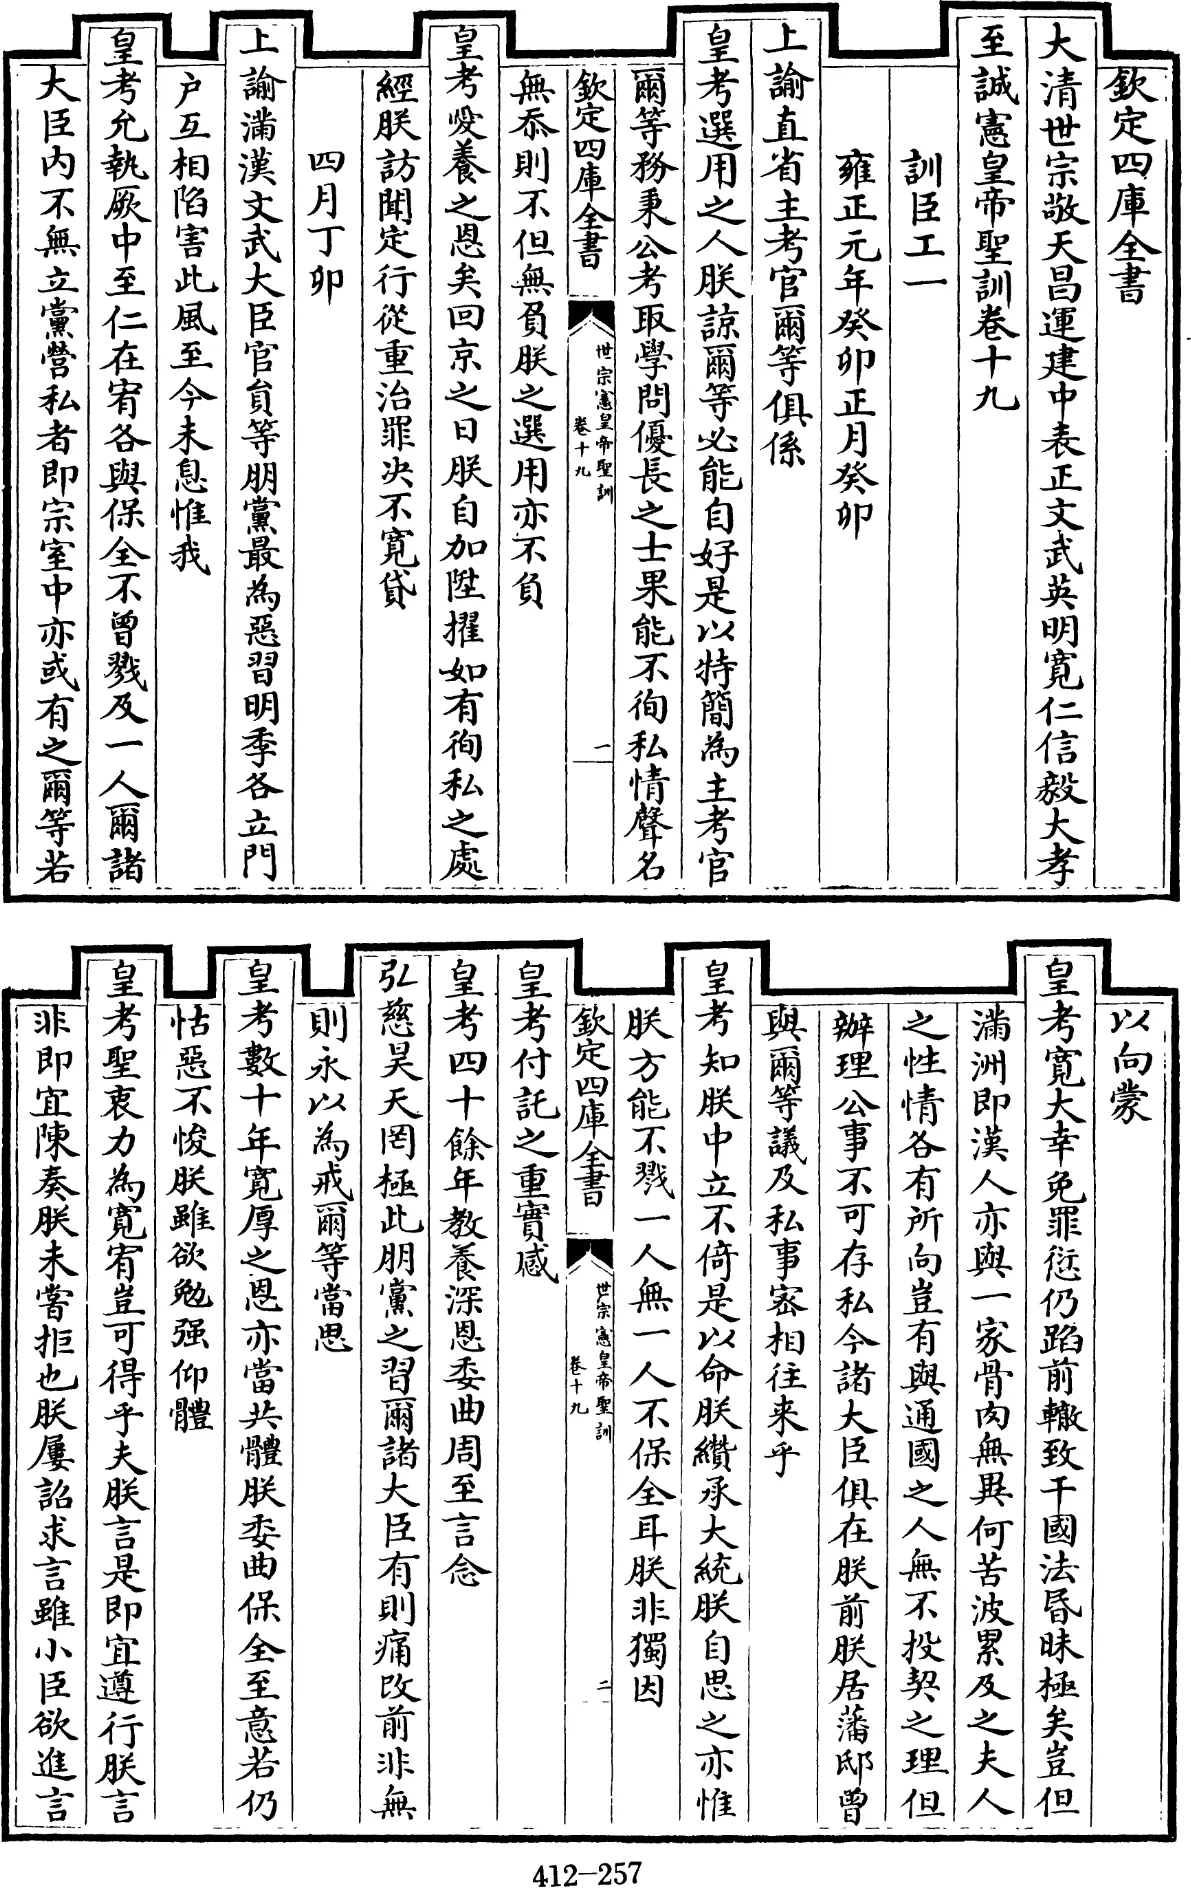 欽定四庫全書
大清世宗敬天昌運建中表正文武英明寛仁信毅大孝
至誠憲皇帝聖訓卷十九
訓臣工一
雍正元年癸卯正月癸卯
上諭直省主考官爾等俱係
皇考選用之人朕諒爾等必能自好是以特簡為主考官
爾等務秉公考取學問優長之士果能不徇私情聲名
欽定四庫全書
世宗憲皇帝聖訓
卷十九
一
無忝則不但無負朕之選用亦不負
皇考愛養之恩矣回京之日朕自加陞擢如有徇私之處
經朕訪聞定行從重治罪决不寛貸
四月丁卯
上諭滿漢文武大臣官員等朋黨最為惡習明季各立門
户互相陷害此風至今未息惟我
皇考允執厥中至仁在宥各與保全不曾戮及一人爾諸
大臣内不無立黨營私者即宗室中亦或有之爾等若
以向蒙
皇考寛大幸免罪愆仍蹈前轍致干國法昬昧極矣豈但
滿洲即漢人亦與一家骨肉無異何苦波累及之夫人
之性情各有所向豈有與通國之人無不投契之理但
辦理公事不可存私今諸大臣俱在朕前朕居藩邸曾
與爾等議及私事宻相往来乎
皇考知朕中立不倚是以命朕纘承大統朕自思之亦惟
朕方能不戮一人無一人不保全耳朕非獨因
欽定四庫全書
世宗憲皇帝聖訓
卷十九
二
皇考付託之重實感
皇考四十餘年教養深恩委曲周至言念
弘慈昊天罔極此朋黨之習爾諸大臣有則痛改前非無
則永以為戒爾等當思
皇考數十年寛厚之恩亦當共體朕委曲保全至意若仍
怙惡不悛朕雖欲勉强仰體
皇考聖衷力為寛宥豈可得乎夫朕言是即宜遵行朕言
非即宜陳奏朕未嘗拒也朕屢詔求言雖小臣欲進言
412-257